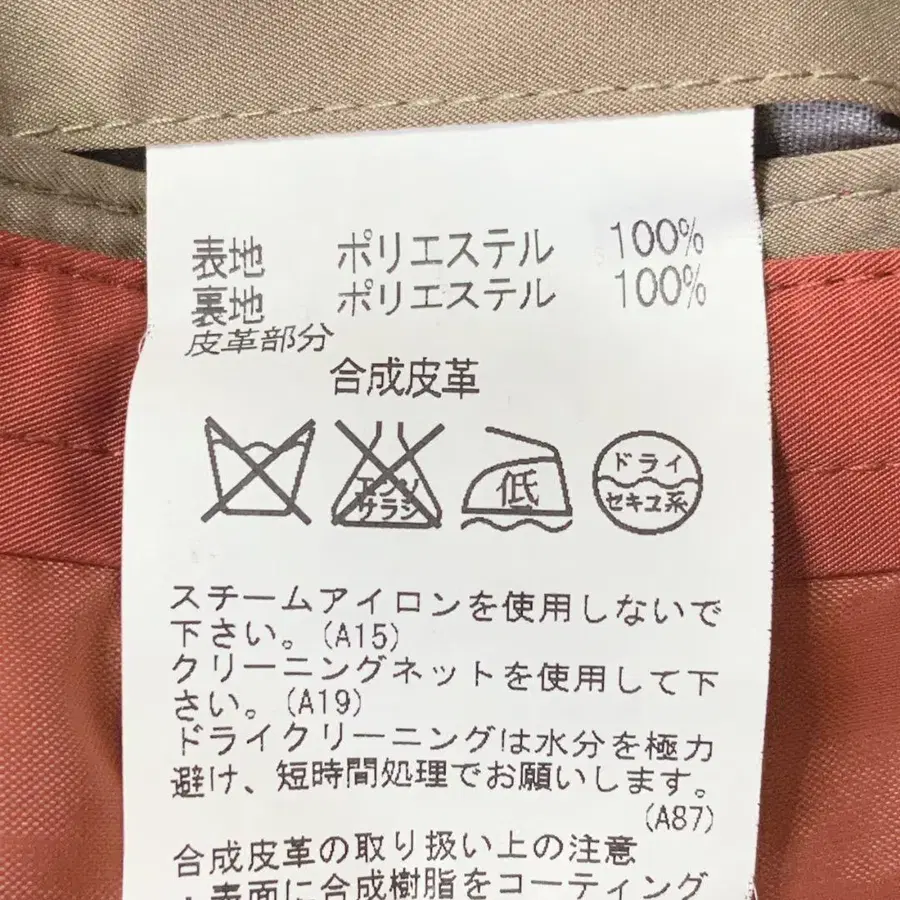 表地 ポリエステル 100%
裏地 ポリエステル 100%
皮革部分
合成皮革
エンソ
サラシ
低
ドライ
セキユ系
スチームアイロンを使用しないで
下さい。(A15)
クリーニングネットを使用して下
さい。(A19)
ドライクリーニングは水分を極力
避け、短時間処理でお願いします。
(A87)
合成皮革の取り扱い上の注意
・表面に合成樹脂をコーティング